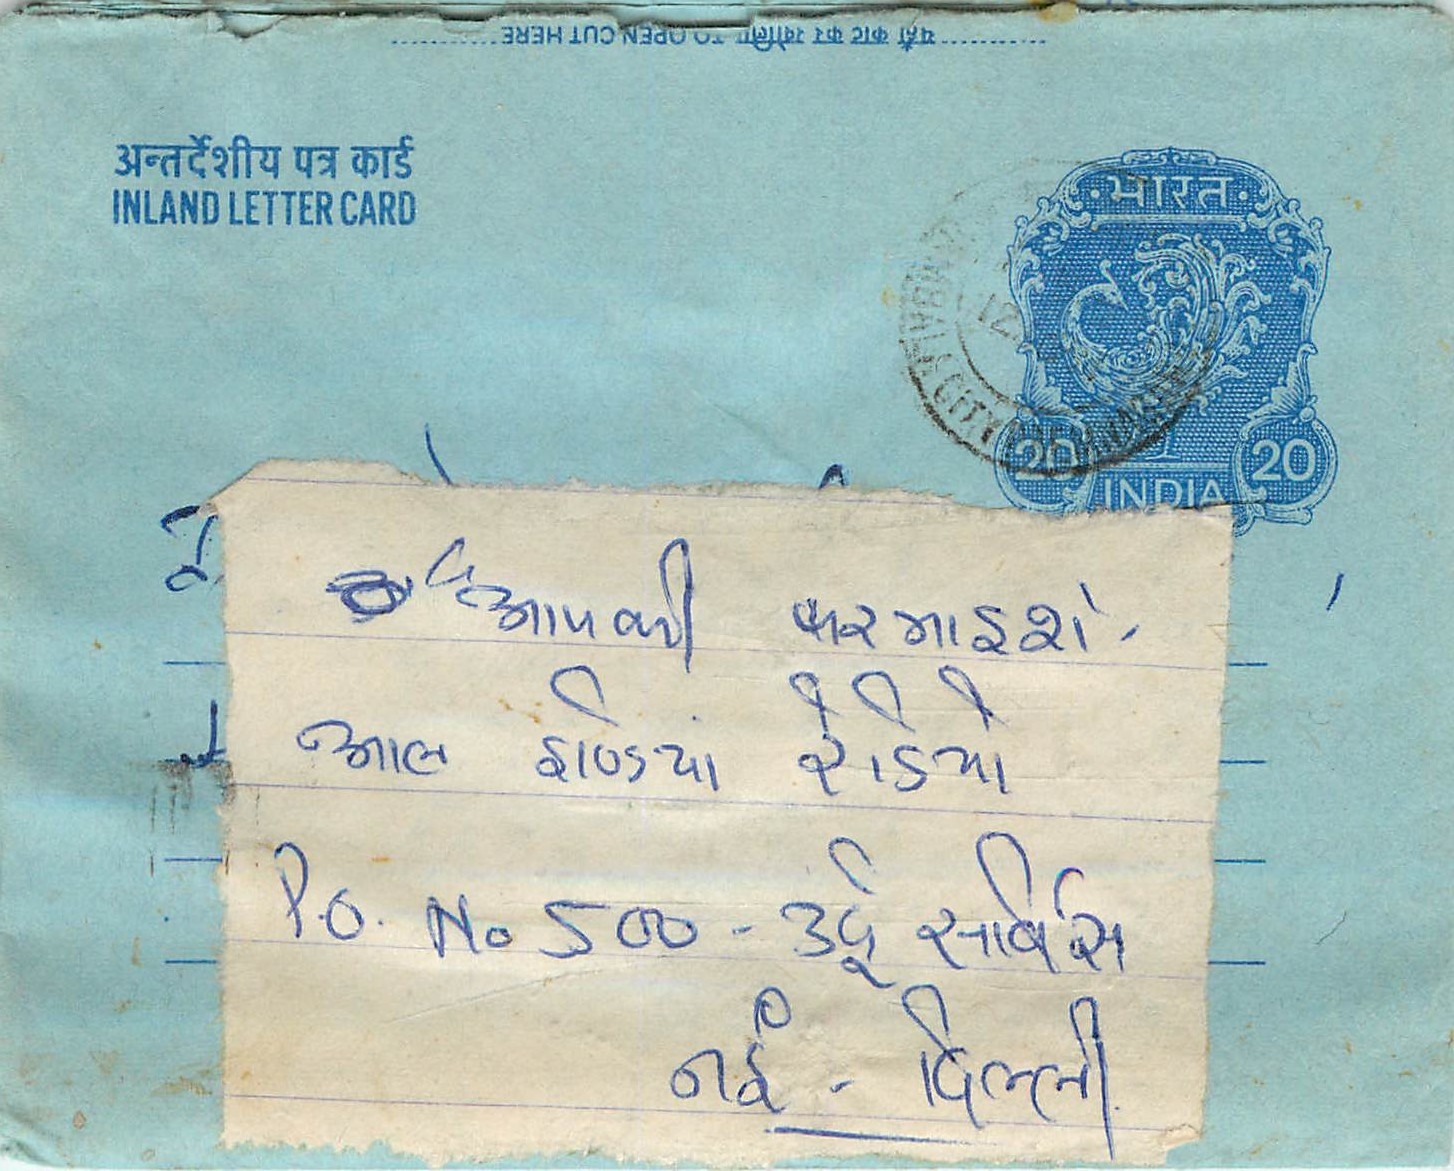 यहाँ काट कर खोलिए TO OPEN CUT HERE
अन्तर्देशीय पत्र कार्ड
INLAND LETTER CARD
भारत
20 20
INDIA
આપકી ફરમાઇશે
આલ ઇણ્ડિયા રેડિયો
P.O. No 500 - ઉર્દૂ સર્વિસ
નઈ - દિલ્લી